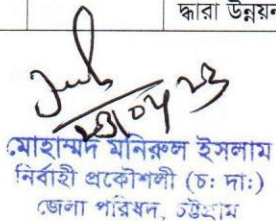 দ্বারা উন্নয়ন
মোহাম্মদ মনিরুল ইসলাম
নির্বাহী প্রকৌশলী (চ: দা:)
জেলা পরিষদ, চট্টগ্রাম